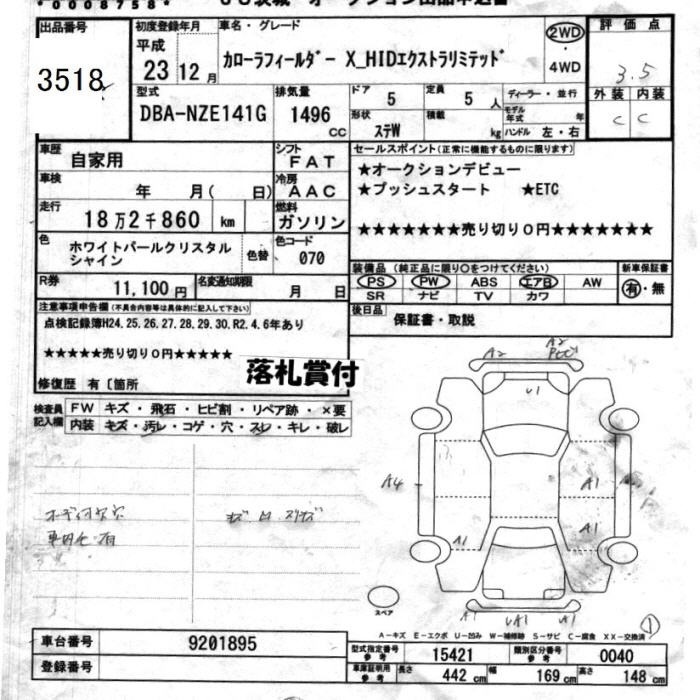 *00087584*
出品番号
3518
初度登録年月
平成
23 12 月
車名・グレード
カローラフィールダー X_HIDエクストラリミテッド
2WD
・
4WD
評価点
3.5
外装 内装
C C
型式
DBA-NZE141G
排気量
1496
CC
ドア
5
定員
5 人
形状
ステW
積載
kg
ディーラー・並行
モデル年式 年
ハンドル 左・右
車歴
自家用
車検
年 月( 日)
走行
18 万 2 千 860 km
色
ホワイトパールクリスタル
シャイン
色替
シフト
FAT
冷房
AAC
燃料
ガソリン
色コード
070
R券
11,100 円
名変通知期限
月 日
セールスポイント(正常に機能するものに限ります)
★オークションデビュー
★プッシュスタート ★ETC
★★★★★★★売り切り0円★★★★★★★
装備品 (純正品に限り○をつけてください)
PS PW ABS エアB AW
SR ナビ TV カワ
新車保証書
有・無
後日品
保証書・取説
注意事項申告欄(不具合内容等は具体的に記入して下さい)
点検記録簿H24.25.26.27.28.29.30.R2.4.6年あり
★★★★★売り切り0円★★★★★
落札賞付
修復歴 有〔箇所
検査員
記入欄
FW キズ・飛石・ヒビ割・リペア跡・×要
内装 キズ・汚レ・コゲ・穴・スレ・キレ・破レ
A2
A2
U1
A4
A1
A1
A1
A1
UA1
A1
スペア
①
A-キズ E-エクボ U-凹み W-補修跡 S-サビ C-腐食 XX-交換済
車台番号
9201895
登録番号
型式指定番号
参考
15421
類別区分番号
参考
0040
車庫証明用
参考
長さ 442 cm
幅 169 cm
高さ 148 cm